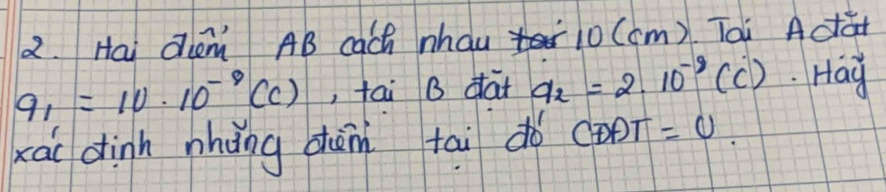 2. Hai điểm AB cách nhau 10 (cm). Tại A đặt
q₁ = 10 . 10⁻⁹ (C), tại B đặt q₂ = 2. 10⁻⁹ (C). Hãy
xác định những điểm tại đó CĐĐT = 0.